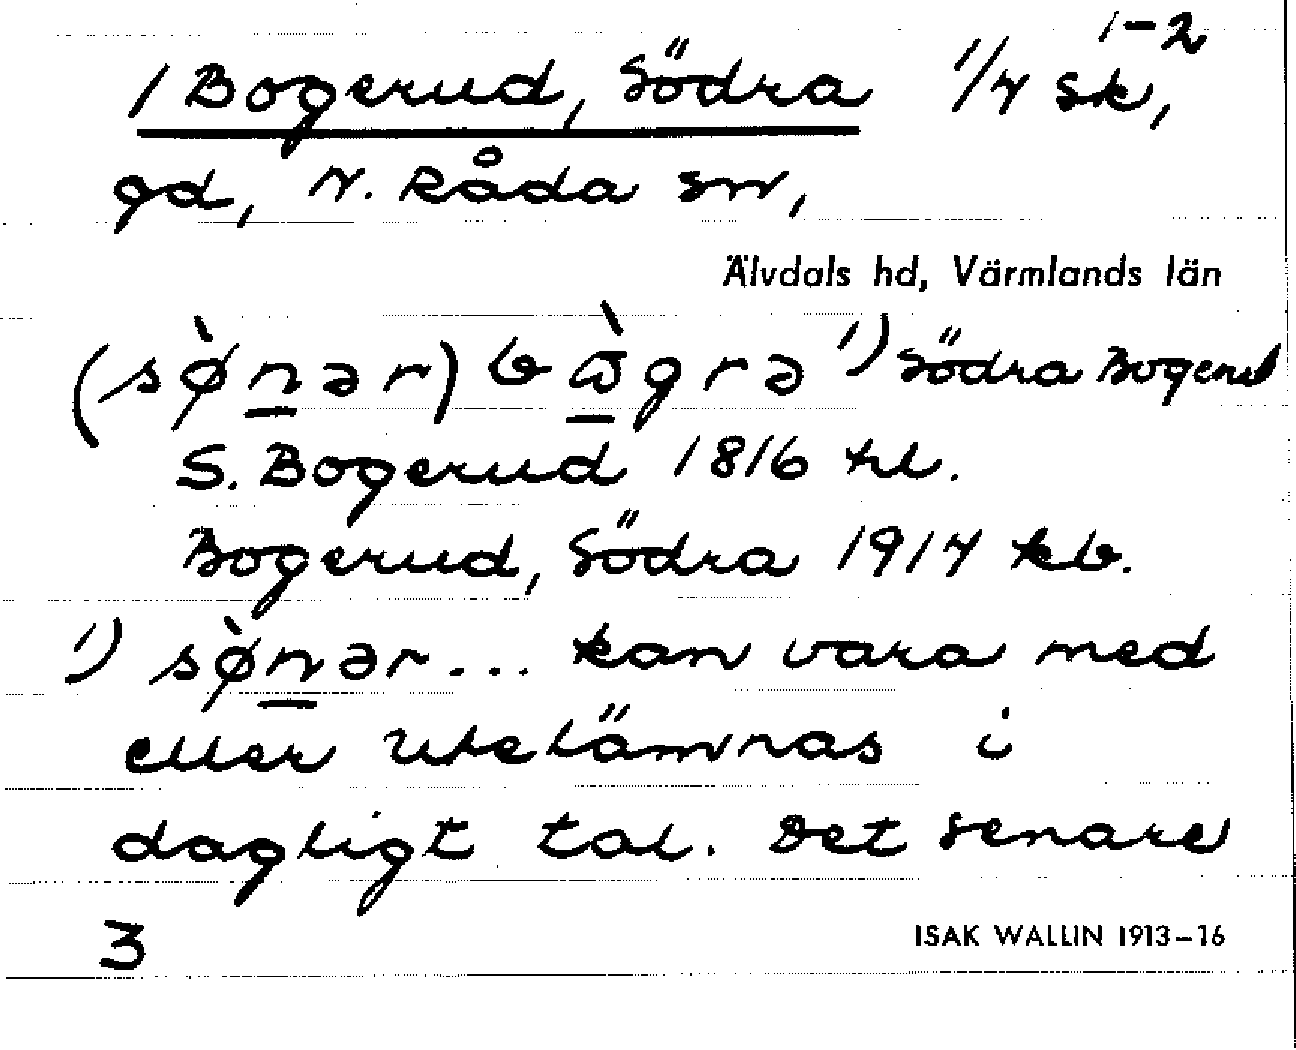 1-2
1 Bogerud, Södra 1/4 sk,
gd, N. Råda sn,
Älvdals hd, Värmlands län
(sø̀nər) bɷ̀grə 1) Södra Bogerud
S. Bogerud 1816 kl.
Bogerud, Södra 1917 kb.
1) sø̀nər... kan vara med
eller utelämnas i
dagligt tal. Det senare
3
ISAK WALLIN 1913–16